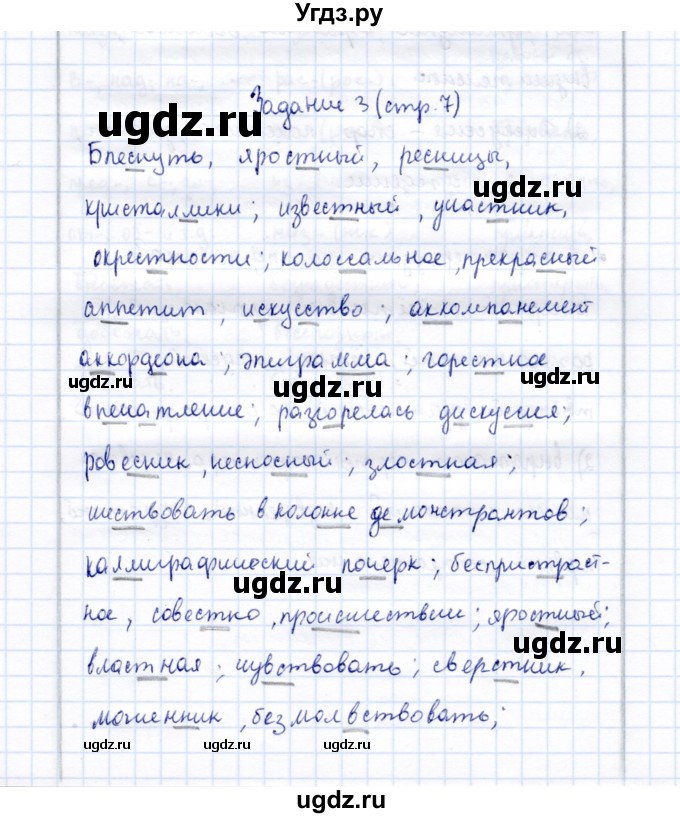 Угдз.ру
Задание 3 (стр. 7)
ugdz.ru
Блеснуть, яростный, ресницы,
ugdz.ru
кристаллики; известный, участник,
окрестности; колоссальное, прекрасный
аппетит; искусство; аккомпанемент
аккордеона; эпиграмма; горестное
ugdz.ru ugdz.ru ugdz.ru
впечатление; разгорелась дискуссия;
ровесник, несносный; злостная;
шествовать в колонне демонстрантов;
каллиграфический почерк; беспристраст-
ugdz.ru
ное, совестно, происшествии; яростный;
ugdz.ru
властная; чувствовать; сверстник,
мошенник, безмолвствовать;
ugdz.ru ugdz.ru ugdz.ru ugdz.ru
ugdz.ru